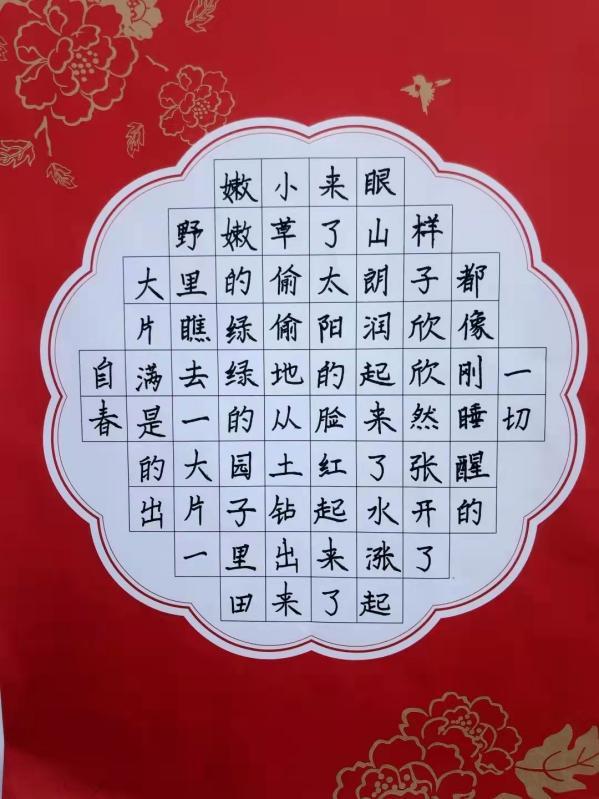 一切
都像刚睡醒的
样子欣欣然张开了
眼山朗润起来了水涨起
来了太阳的脸红起来了
小草偷偷地从土钻出来
嫩嫩的绿绿的园子里田
野里瞧去一大片一
大片满是的出
自春